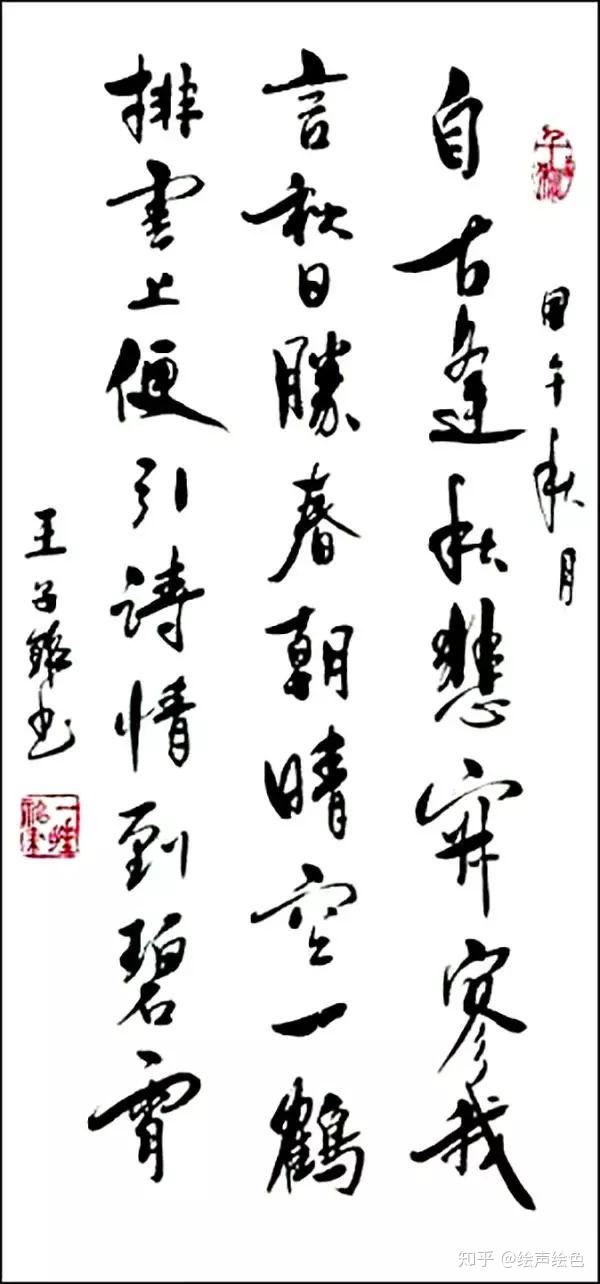 甲午秋月
自古逢秋悲寂寥我
言秋日勝春朝晴空一鶴
排雲上便引詩情到碧霄
王子书
知乎 @绘声绘色